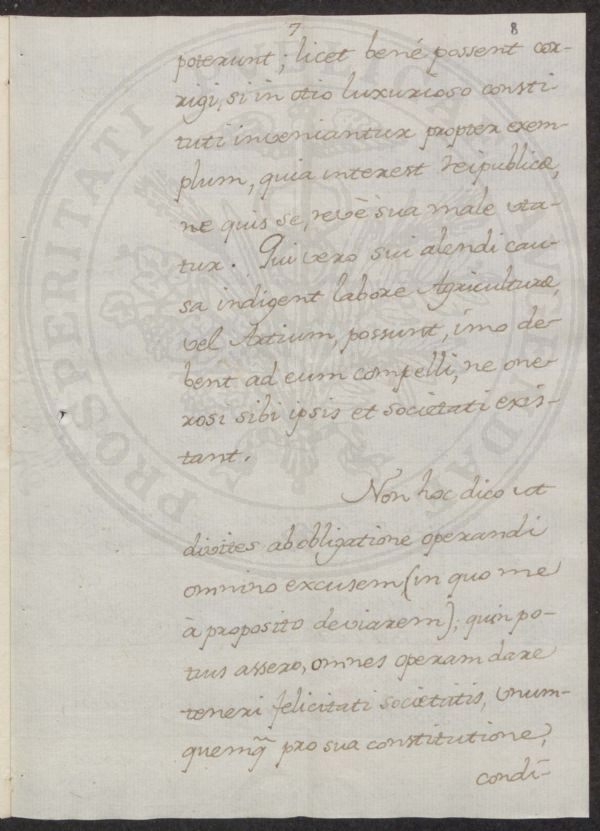 7 8
poterunt; licet bené possent cor-
rigi, si in otio luxurioso consti-
tuti inveniantur propter exem-
plum, quia interest reipublicæ,
ne quis se, revè sua male uta-
tur. Qui vero sui alendi cau-
sa indigent labore Agriculturæ,
vel Artium, possunt, imo de-
bent ad eum compelli, ne one-
rosi sibi ipsis et societati exis-
tant.
Non hoc dico ut
divites ab obligatione operandi
omnino excusem (in quo me
à proposito deviarem); quin po-
tius assero, omnes operam dare
teneri felicitati societatis, unum-
quemq̃ pro sua constitutione,
condi-
PROSPERITATI PUBLICAE AUGENDAE